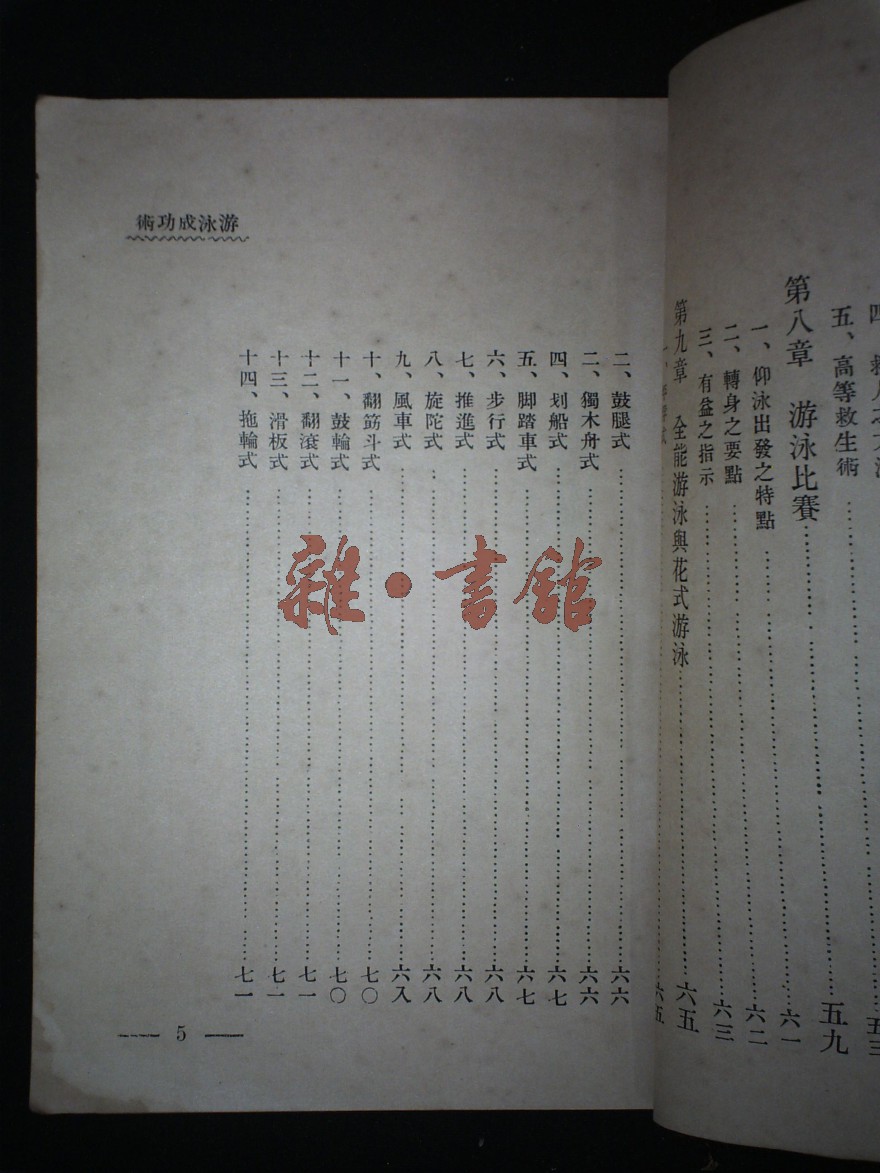 五、高等救生術
五三
第八章 游泳比賽
五九
一、仰泳出發之特點
六一
二、轉身之要點
六二
三、有益之指示
六三
第九章 全能游泳與花式游泳
六五
六五
游泳成功術
二、鼓腿式
六六
二、獨木舟式
六六
四、划船式
六七
五、脚踏車式
六七
六、步行式
六八
七、推進式
六八
八、旋陀式
六八
九、風車式
六八
十、翻筋斗式
七〇
十一、鼓輪式
七〇
十二、翻滾式
七一
十三、滑板式
七一
十四、拖輪式
七一
5
雜·書館